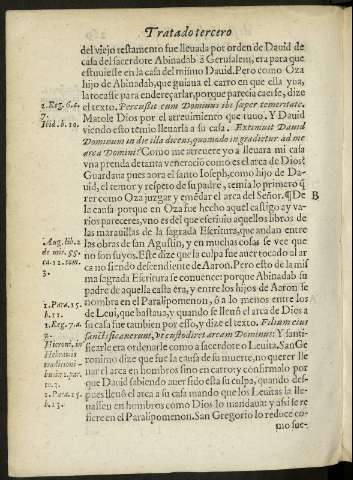 Tratado tercero
del viejo testamento fue lleuada por orden de Dauid de
casa del sacerdote Abinadab a Gerusalem, era para que
estuuiesse en la casa del mismo Dauid. Pero como Oza
hijo de Abinadab, que guiaua el carro en que ella yua,
la tocasse para endereçarlar, porque parecia caerse, dize
2. Reg. 6. a.
7.
el texto. Percussit eum Dominus ibi super temeritate.
Matole Dios por el atreuimiento que tuuo. Y Dauid
Ibid. b. 10.
viendo esto temio lleuarla a su casa. Extimuit Dauid
Dominum in die illa dicens, quomodo ingradietur ad me
arca Domini? Como me atreuere yo a lleuar a mi casa
vna prenda de tanta veneracio como es el arca de Dios?
Guardaua pues aora el santo Ioseph, como hijo de Da-
uid, el temor y respeto de su padre, temia lo primero q̃
rer como Oza juzgar y emẽdar el arca del Señor. ¶ De
B
la causa porque en Oza fue hecho aquel castigo ay va-
rios pareceres, vno es del que escriuio aquellos libros de
las marauillas de la sagrada Escritura, que andan entre
Aug. lib. 2
de mir. SS.
ca. 12. tom.
3.
las obras de san Agustin, y en muchas cosas se vee que
no son suyos. Este dize que la culpa fue auer tocado al ar
ca no siendo descendiente de Aaron. Pero esto de la mis
ma sagrada Escritura se conuence: porque Abinadab su
padre de aquella casta era, y entre los hijos de Aaron se
1. Para. 15.
b. 11.
nombra en el Paralipomenon, ô a lo menos entre los
de Leui, que bastaua, y quando se lleuô el arca de Dios a
1. Reg. 7. a.
su casa fue tambien por esso, y dize el texto. Filium eius
sanctificauerunt, vt custodiret arcam Dominus: Y santi-
Hieroni. in
Hebraicis
traditioni-
bus
to. 3.
ficarle era ordenarle como a sacerdote o Leuita. San Ge
ronimo dize que fue la causa de su muerte, no querer lle
uar el arca en hombros sino en carro: y confirmalo por
que Dauid sabiendo auer sido esta su culpa, quando des-
1. Para. 15.
b. 13.
pues lleuô el arca a su casa mando que los Leuitas la lle-
uassen en hombros como Dios lo mandaua: y assi se re
fiere en el Paralipomenon. San Gregorio lo reduce co-
mo sue-